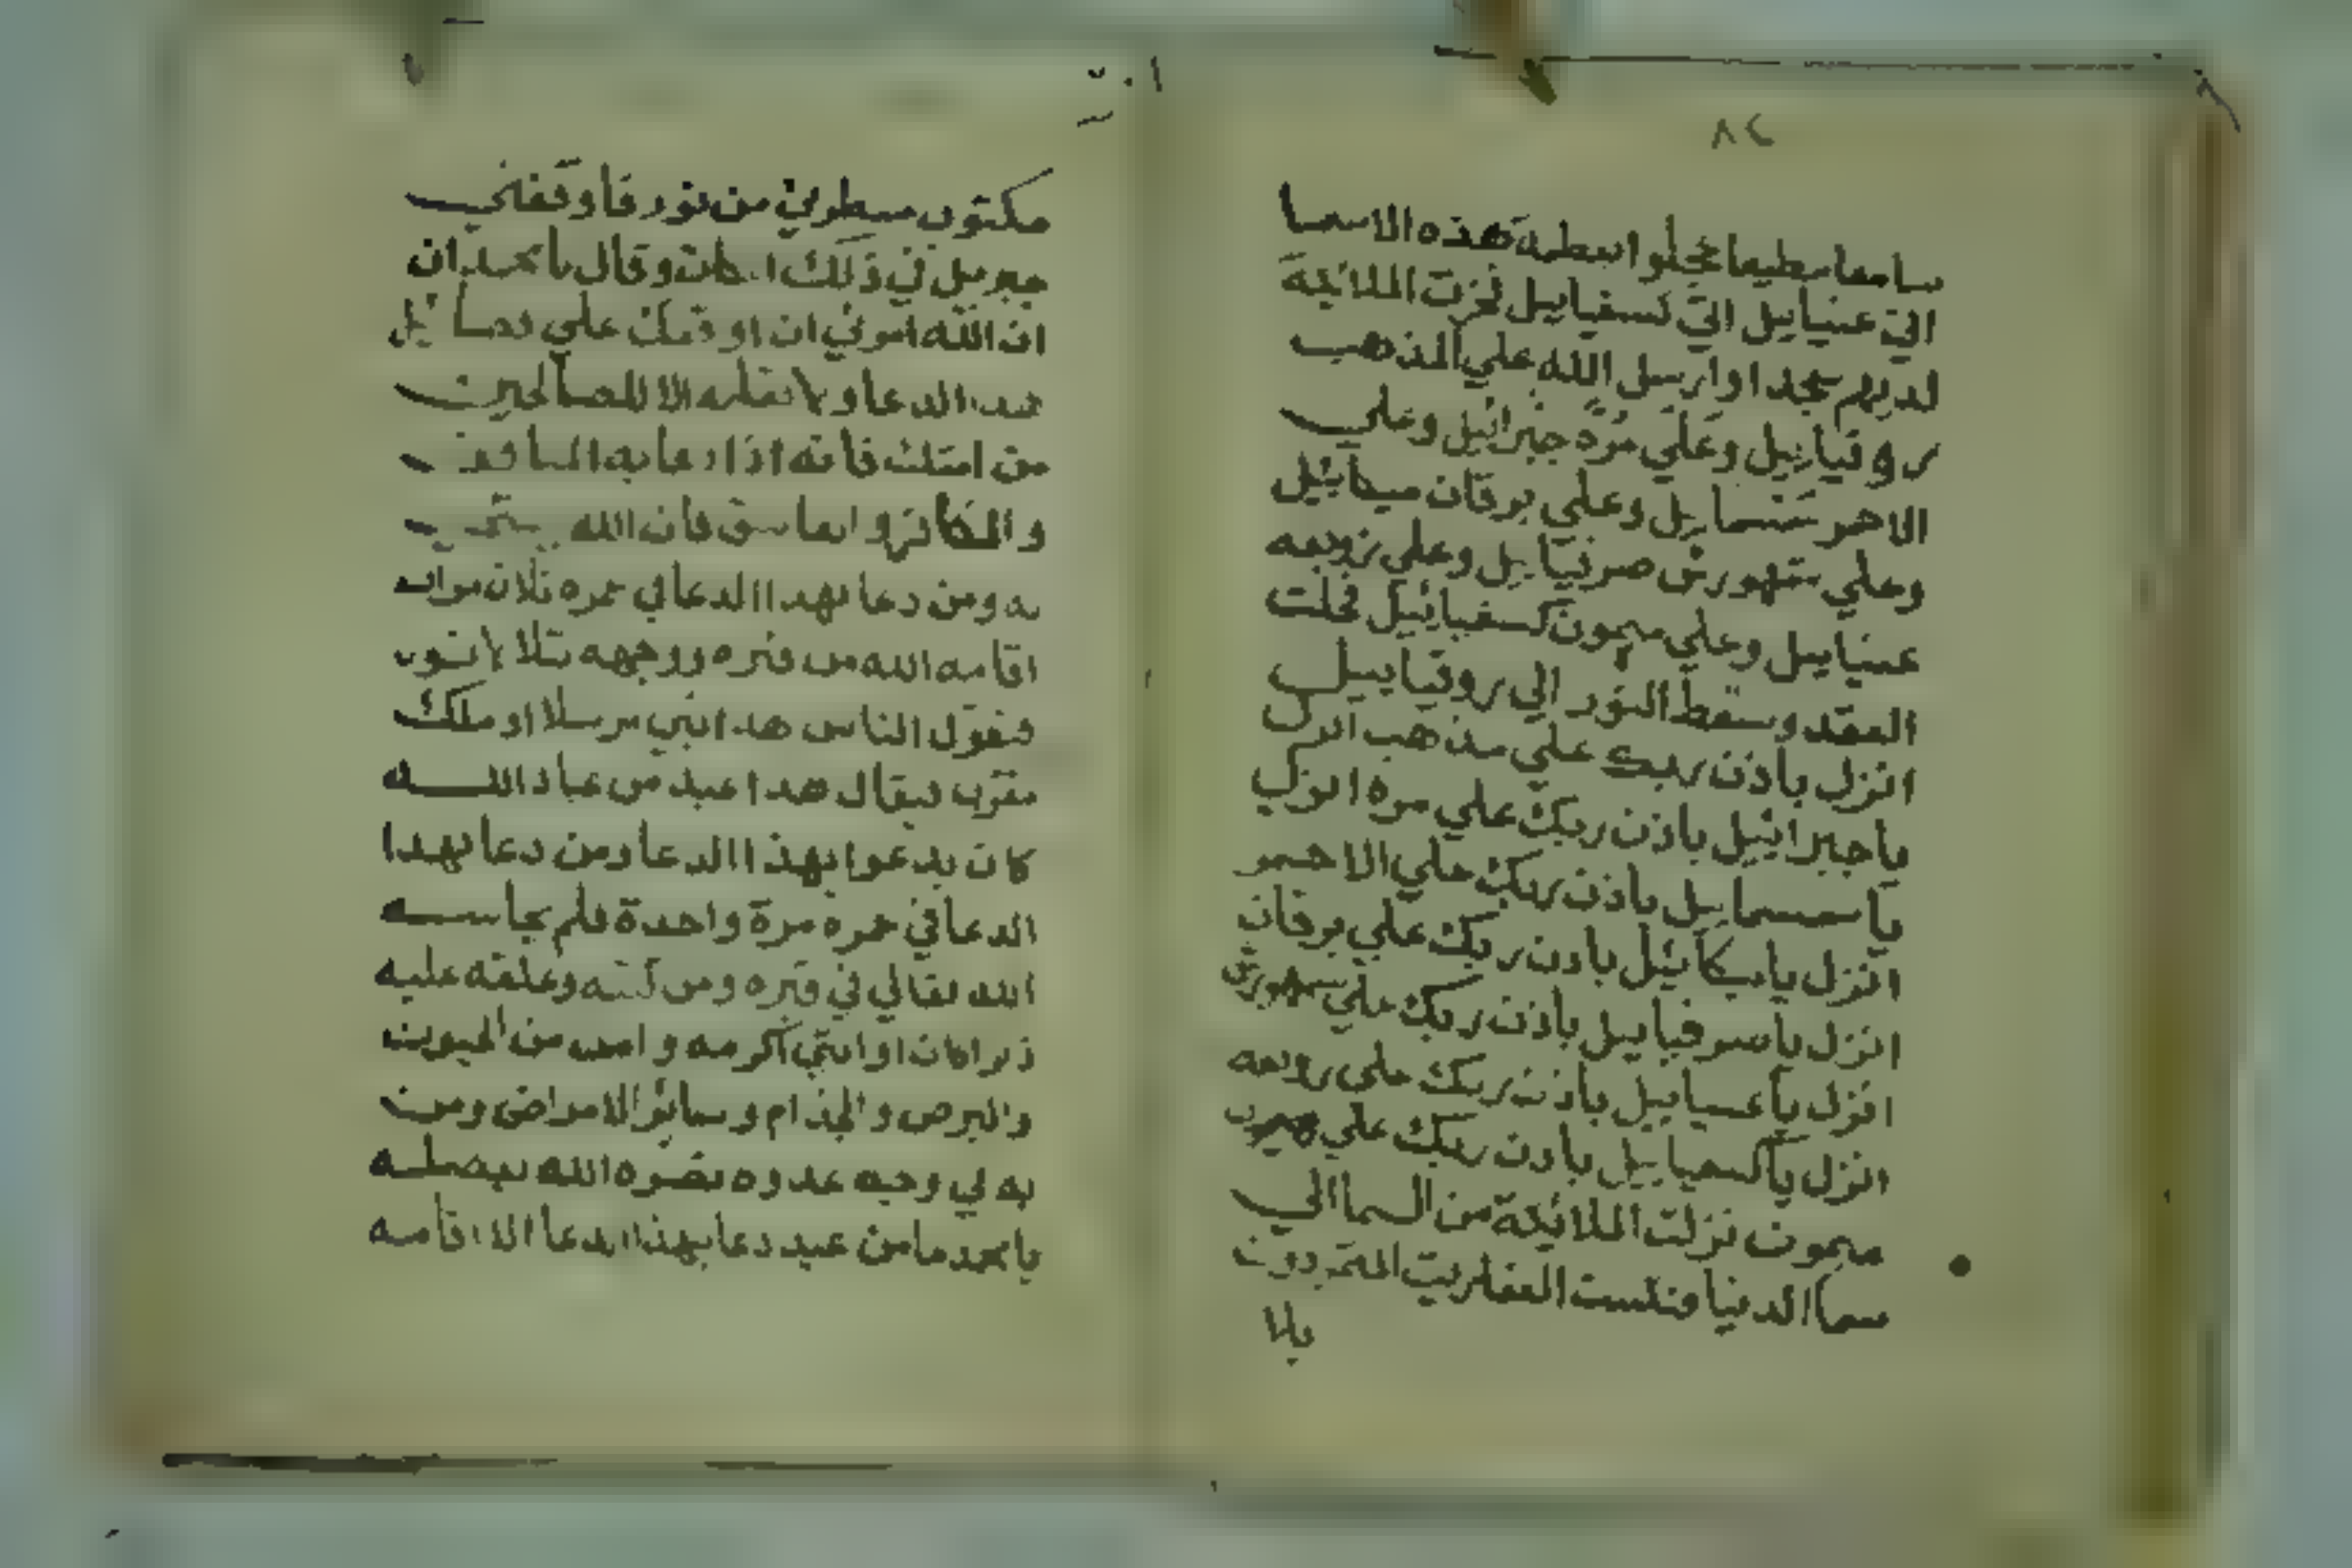 ٨٢
هذه الاسما
الي عنيابيل الي كسفيابيل نزت الملائكة
لديهم سجدا وارسل الله علي المذهب
روقيابيل وعلي مرة جبرائيل وعلي
الاحمر سمسمابيل وعلي برقان ميكائيل
وعلي شمهورش صرفيابيل وعلي زوبعه
عنيابيل وعلي ميمون كسفيائيل فحلت
العقد وسقط النور الي روقيابيل
انزل باذن ربك علي مذهب انزل
ياجبرائيل باذن ربك علي مره انزل
ياسمسمابيل باذن ربك علي الاحمر
انزل ياميكائيل باذن ربك علي برقان
انزل ياصرفيابيل باذن ربك علي شمهورش
انزل ياعنيابيل باذن ربك علي زوبعه
انزل ياكسفيابيل باذن ربك علي
ميمون نزلت الملائكة من السما الي
سما الدنيا ونكست العفاريت المتمردون
مكتوب سطرين من نور قاوقفني
جبريل في ذلك وقال يامحمد ان
ان الله امرني ان اوقفك علي
هدا الدعا ولا تعلمه الا للصالحين
من امتك فانه اذا دعا به المنافق
و الكافر و الفاسق فان الله يستجيب
به ومن دعا بهدا الدعا في عمره ثلاث مرات
اقامه الله من قبره ووجهه يتلالا نور
فيقول الناس هدا نبي مرسلا او ملك
مقرب فيقال هدا عبد من عباد الله
كان يدعوا بهذا الدعا ومن دعا بهدا
الدعا في عمره مرة واحدة فلم يحاسبه
الله تعالي في قبره ومن كتبه وعلقه عليه
ذكرا كان او انثي اكرمه و امن من
والبرص والجذام وسائر الامراض ومن
به في وجه عدوه نصره الله
يامحمد مامن عبد دعا بهذا الدعا الا اقامه